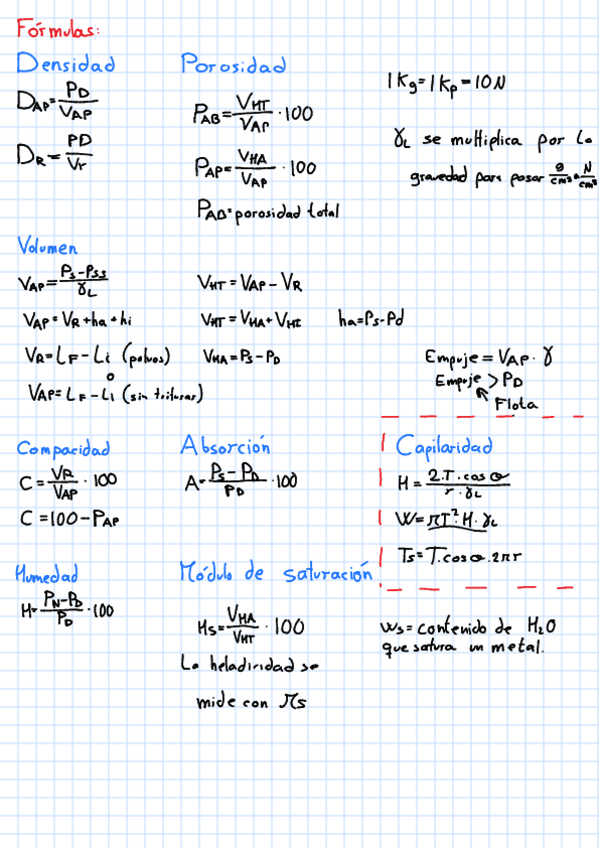 Fórmulas:
Densidad
D_AP = P_D / V_AP
D_R = PD / Vr
Porosidad
P_AB = V_HT / V_AP · 100
P_AP = V_HA / V_AP · 100
P_AB = porosidad total
1 Kg = 1 Kp = 10 N
γ_L se multiplica por la
gravedad para pasar g/cm³ a N/cm³
Volumen
V_AP = P_S - P_SS / γ_L
V_AP = V_R + ha + hi
V_R = L_F - L_i (polvos)
o
V_AP = L_F - L_i (sin triturar)
V_HT = V_AP - V_R
V_HT = V_HA + V_HI
ha = Ps - Pd
V_HA = P_S - P_D
Empuje = V_AP · γ
Empuje > P_D
↖ Flota
Compacidad
C = V_R / V_AP · 100
C = 100 - P_AP
Absorción
A = P_S - P_D / P_D · 100
Capilaridad
H = 2·T·cos θ / r·γ_L
W = πT²·H·γ_L
Ts = T·cos θ·2πr
Humedad
H = P_N - P_D / P_D · 100
Módulo de saturación
Ms = V_HA / V_HT · 100
La heladicidad se
mide con Ms
Ws = contenido de H₂O
que satura un metal.